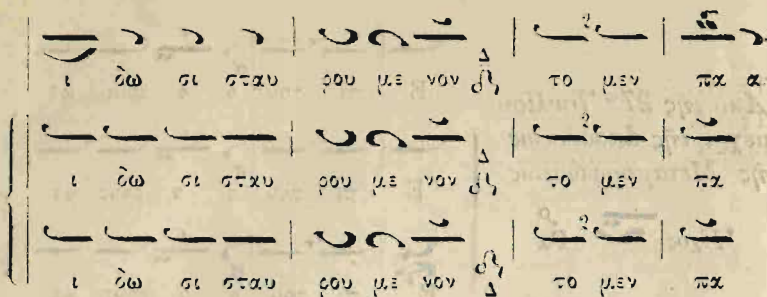 ι δω σι σταυ ρου με νον Δ το μεν πα α
ι δω σι σταυ ρου με νον Δ το μεν πα
ι δω σι σταυ ρου με νον Δ το μεν πα